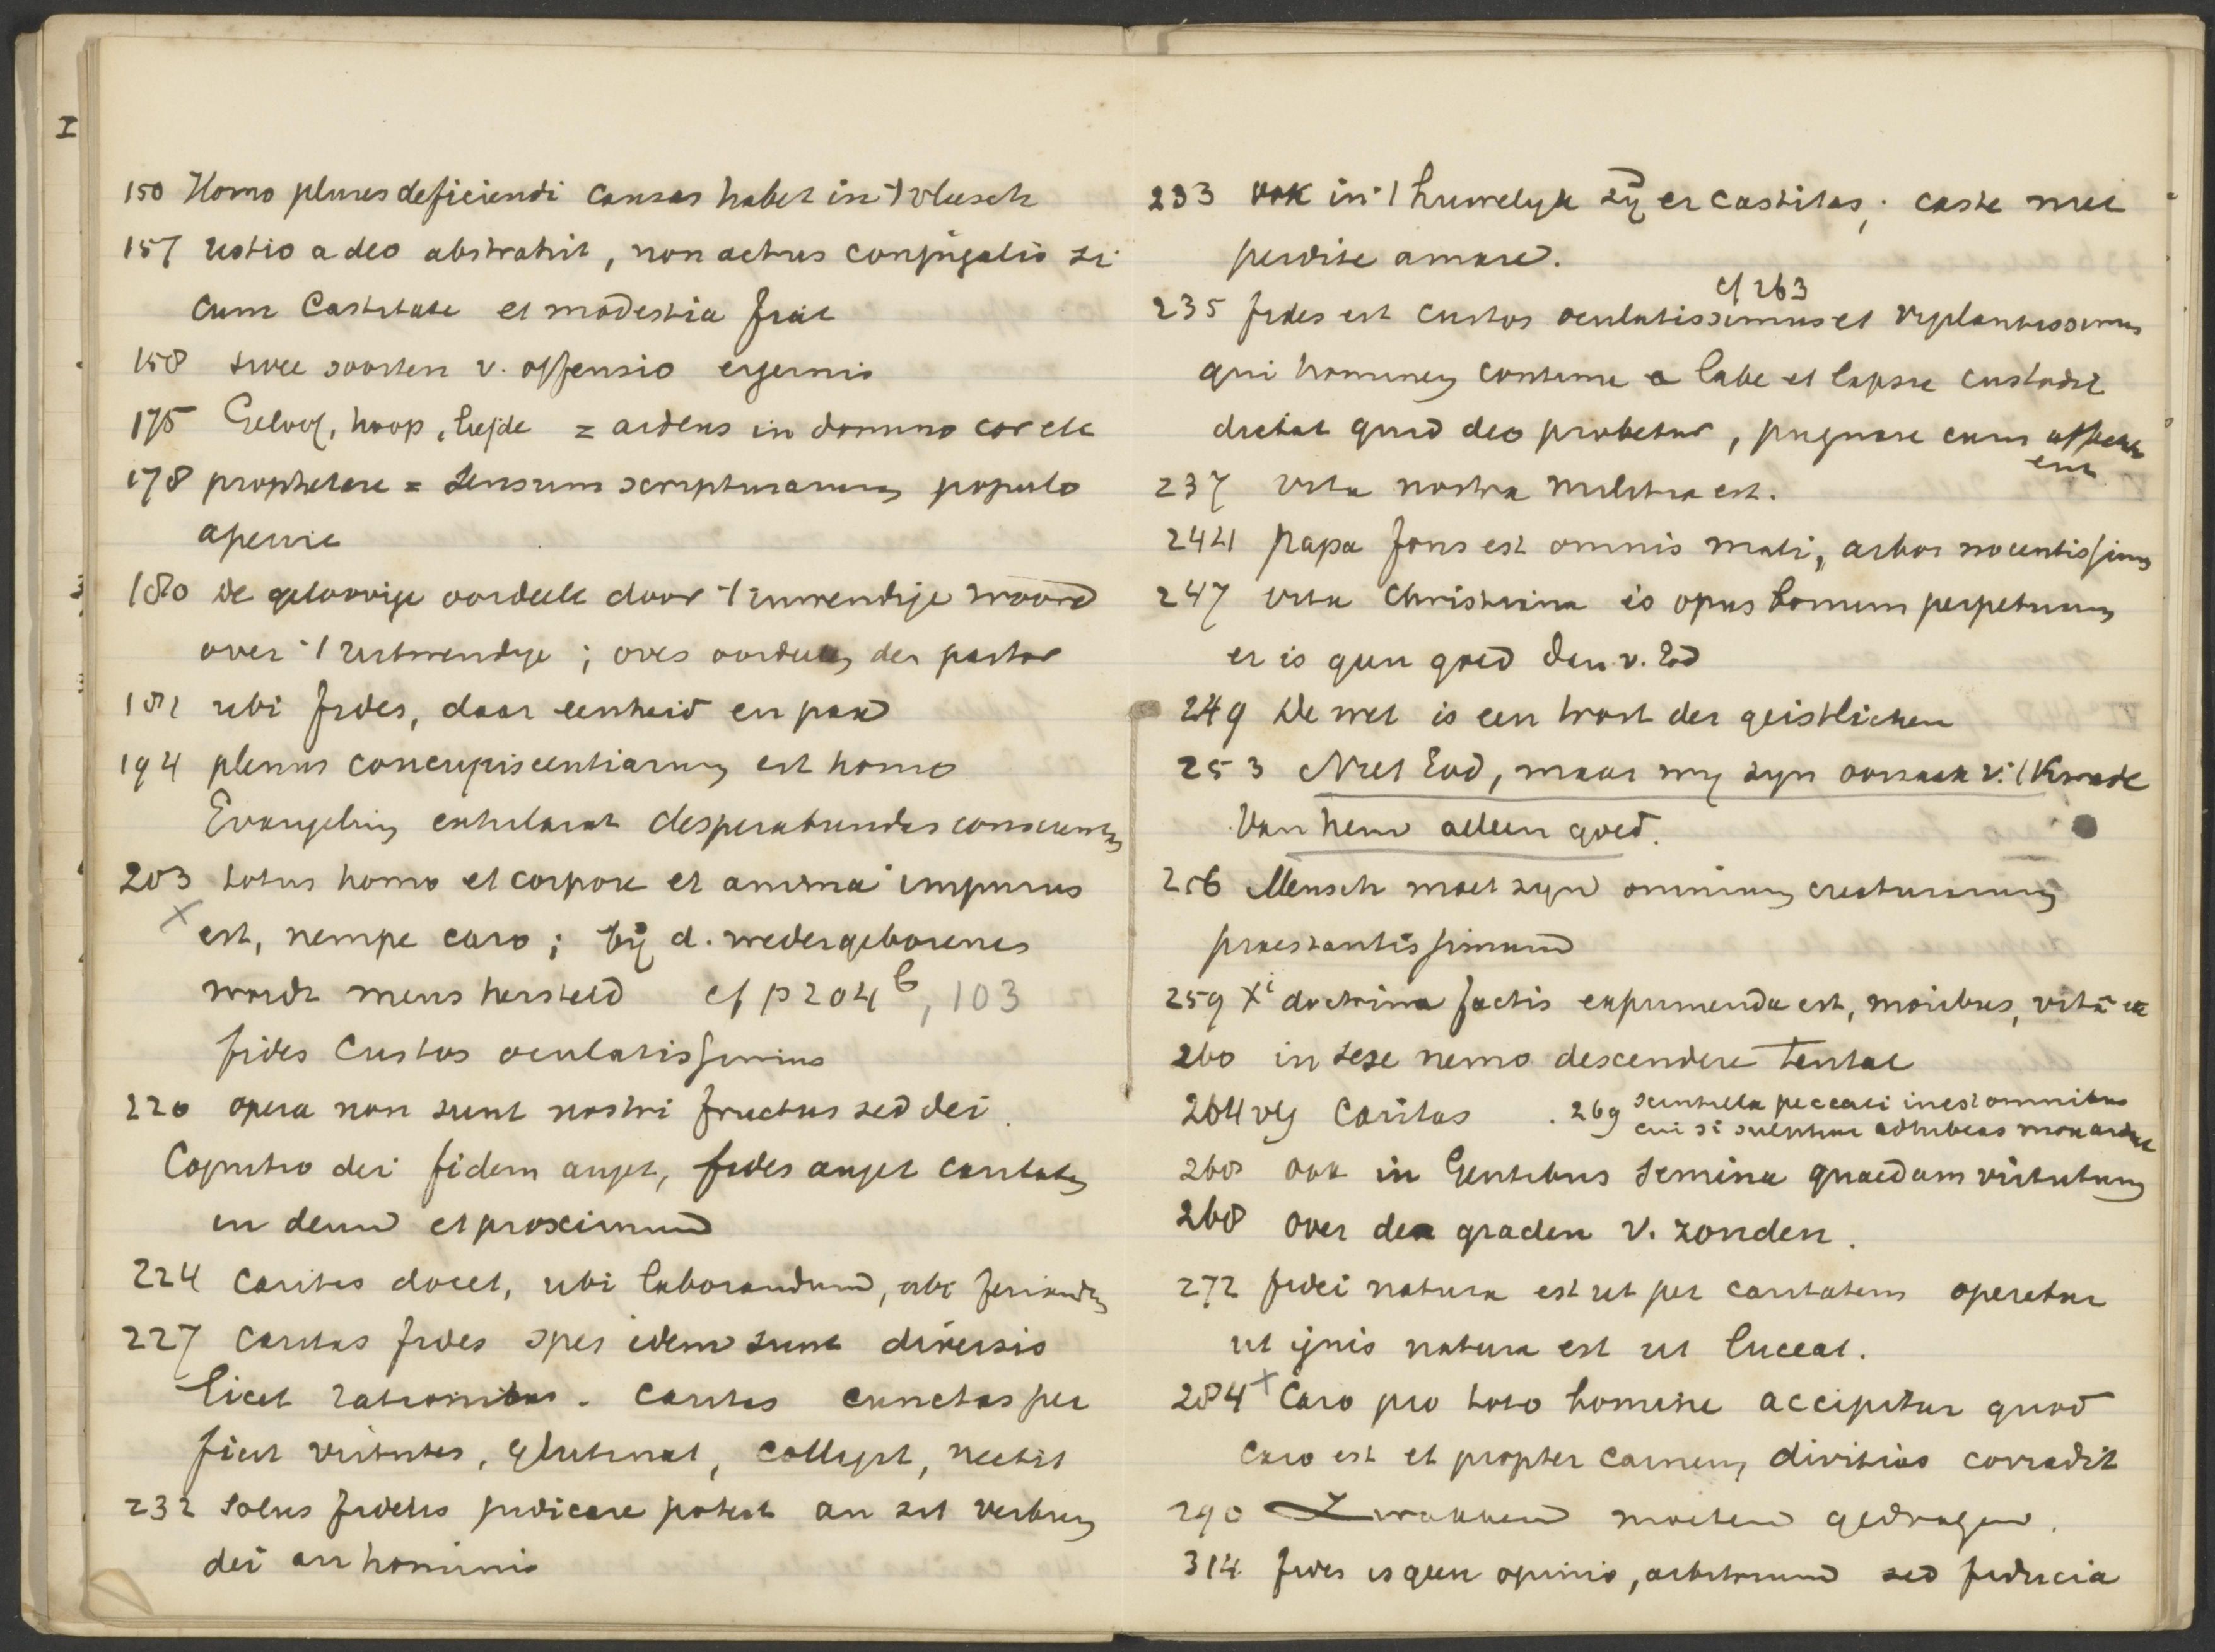 I
150 Homo plures deficiendi causas habet in 't vleesch
157 ustio a deo abstrahit, non actus conjugalis si
cum Castitate et modestia fiat
158 twee soorten v. offensio ergernis
175 Geloof, hoop, liefde = ardens in domino cor etc
178 prophetare = sensum scripturarum populo
aperire
180 De geloovige oordeelt door 't inwendige woord
over 't uitwendige ; oves oordeelen den pastor
182 ubi fides, daar eenheid en pax
194 plenus concupiscentiarum est homo
Evangelium exhilarat desperabundas conscientias
203 totus homo et corpore et anima impurus
x est, nempe caro ; bij d. wedergeborenes
wordt mens hersteld cf p 204 b, 103
fides Custos oculatissimus
220 opera non sunt nostri fructus sed dei.
Cognitio dei fidem auget, fides auget caritatem
in deum et proximum
224 Caritas docet, ubi laborandum, ubi feriandum
227 Caritas fides spes idem sunt diversis
licet rationibus. Caritas cunctas per
ficit virtutes, glutinat, colligit, nectit
232 Solus fidelis judicare potest an sit verbum
dei an hominis
233 ook in 't huwelyk zij er castitas; caste niet
perdite amare.
cf 263
235 fides est custos oculatissimus et vigilantissimus
qui hominem contine a labe et lapsu custodit
dictat quid deo probetur, pugnare cum affectu
237 vita nostra militia est.
244 papa fons est omnis mali, arbor nocentissima
247 vita Christiana is opus bonum perpetuum
er is geen goed dan v. God
249 De wet is een trost der geistlichen
253 Niet God, maar wy zyn oorzaak v. 't Kwade
Van hem alleen goed.
256 Mensch moet zyn omnium creaturarum
praestantissimum
259 Xi doctrina factis exprimenda est, moribus, vitâ etc
260 in sese nemo descendere tentat
264 vlg Caritas . 269 scintilla peccati inest omnibus
cui si sulphur adhibeas mox ardet
268 ook in Gentibus semina quaedam virtutum
268 over den graden v. zonden.
272 fidei natura est ut per caritatem operetur
ut ignis natura est ut luceat.
284 x Caro pro toto homine accipitur quod
caro est et propter carnem divitias corradit
290 Zwakken moeten gedragen.
314 fides is geen opinio, arbitrium sed fiducia